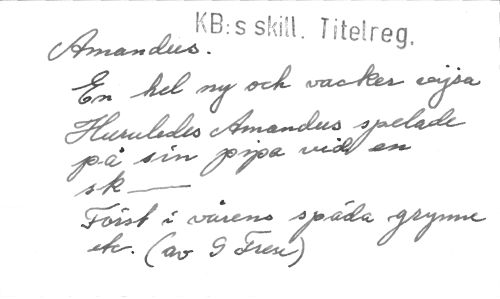 KB:s skill. Titelreg.
Amandus.
En hel ny och vacker wijsa
Huruledes Amandus spelade
på sin pipa vid en
sk —
Först i vårens späda grynne
etc. (av G Frese)